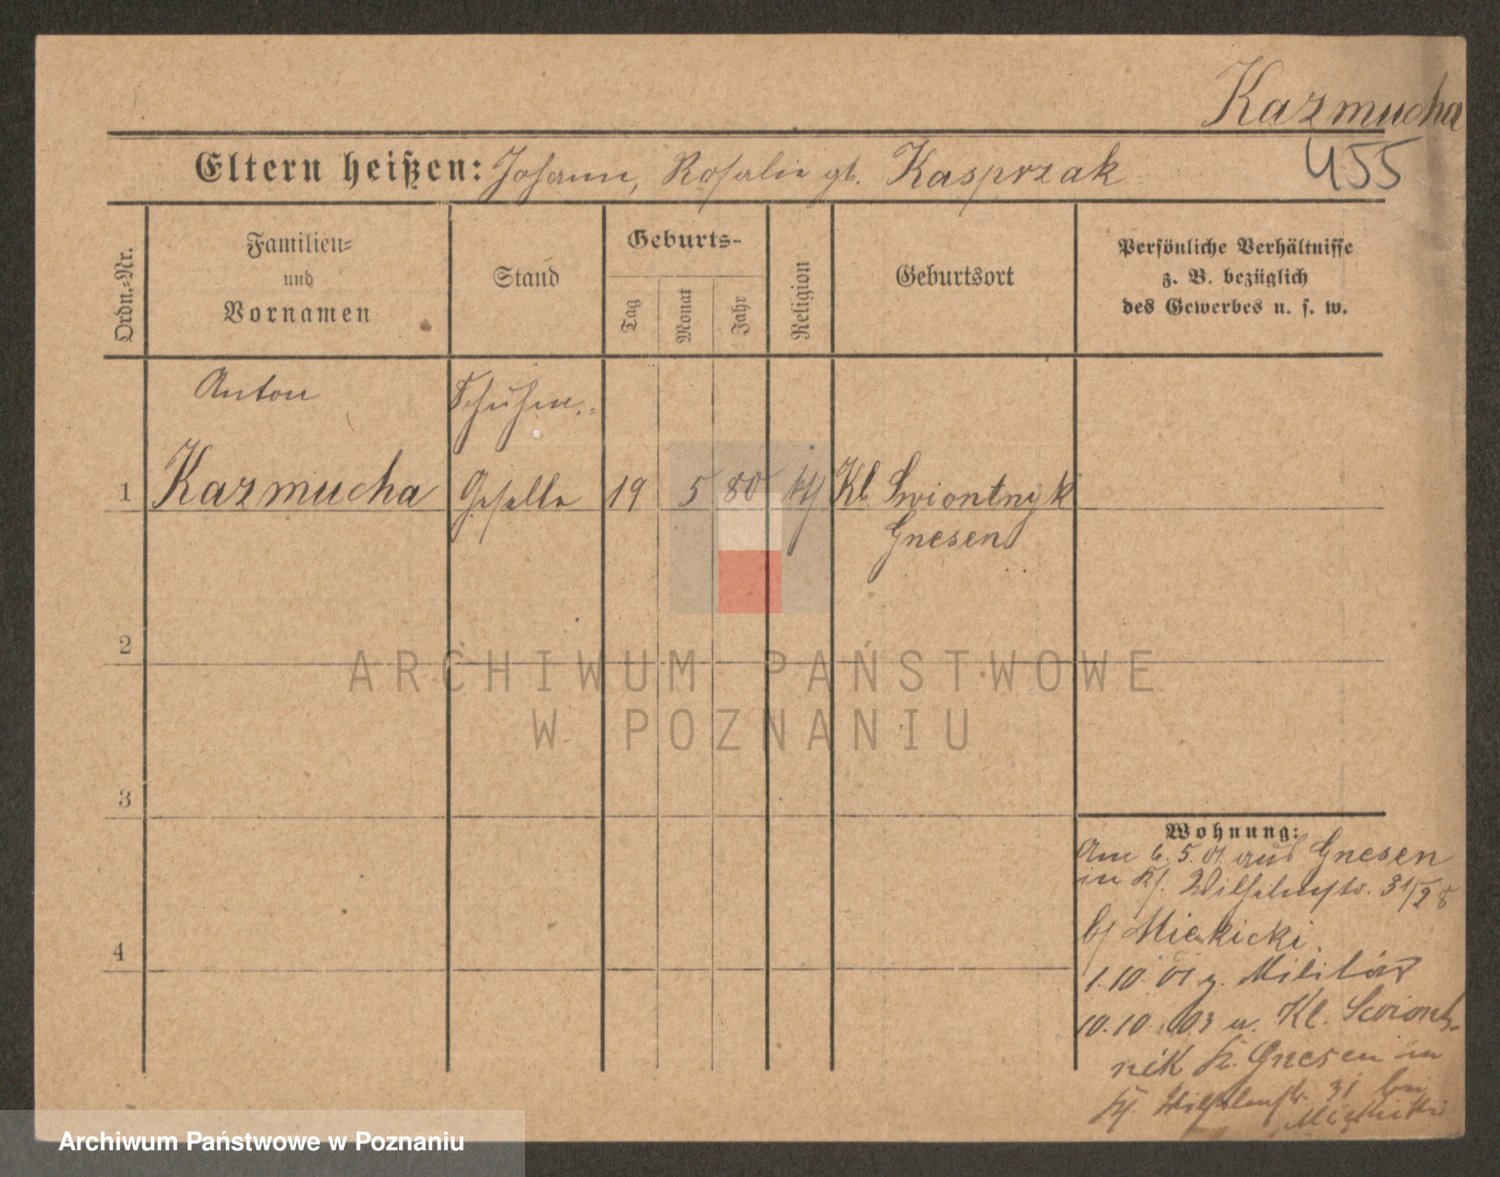 Kazmucha
Eltern heißen: Johann, Rosalie gb. Kasprzak
455
Ordn.-Nr.
Familien-
und
Vornamen
Stand
Geburts-
Tag
Monat
Jahr
Religion
Geburtsort
Persönliche Verhältnisse
z. B. bezüglich
des Gewerbes u. s. w.
Anton
Schuhm.-
1 Kazmucha Geselle 19 5 80 kth Kl. Swiontnyk
Gnesen
2
ARCHIWUM PAŃSTWOWE
W POZNANIU
3
Wohnung:
Am 6.5.01 aus Gnesen
in Wilhelmstr. 31/28
4
1.10.01 z. Militär
10.10.03 Kl. Swiont-
nik Gnesen in
Wilhelmstr. 31
Archiwum Państwowe w Poznaniu